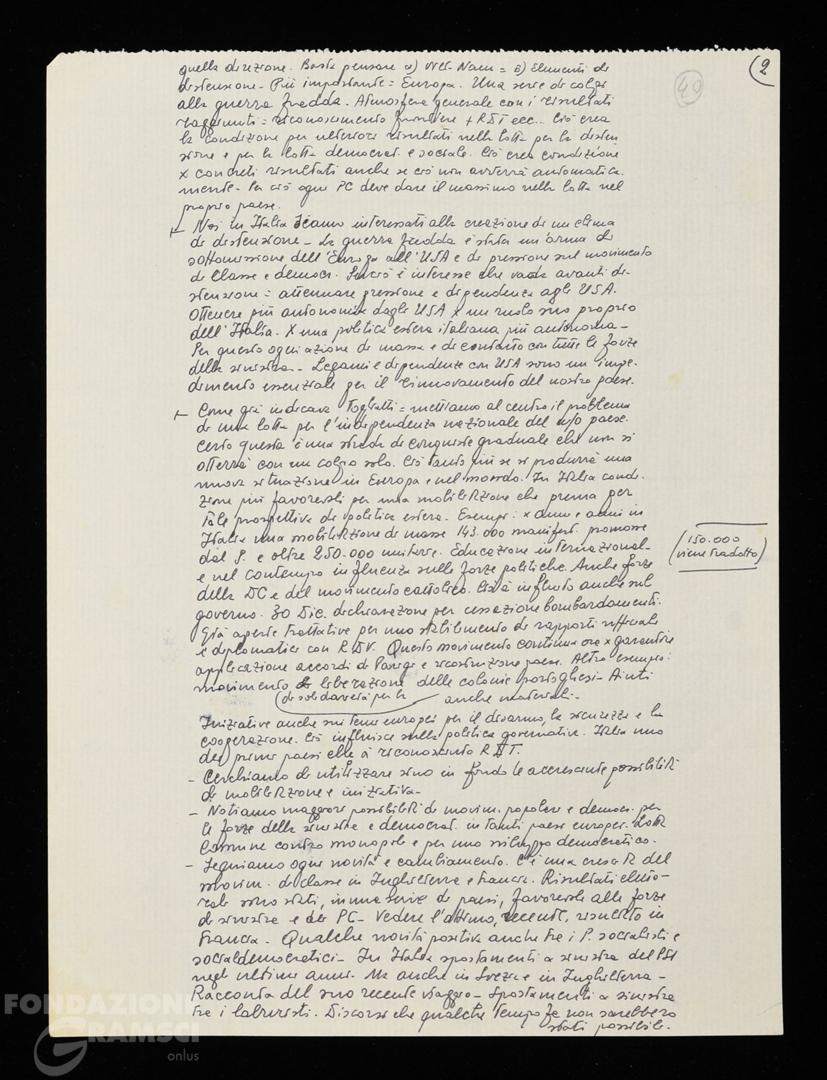 2
40
quella direzione. Basta pensare a) Viet-Nam = b) Elementi di
distensione. Più importante = Europa. Una serie di colpi
alla guerra fredda. Atmosfera generale con i risultati
raggiunti = riconoscimento frontiere + RDT ecc.. Ciò crea
la condizione per ulteriori risultati nella lotta per la disten
sione e per la lotta democrat. e sociale. Ciò crea condizione
x concreti risultati anche se ciò non avverrà automatica.
mente. Per ciò ogni PC deve dare il massimo nella lotta nel
proprio paese.
- Noi in Italia siamo interessati alla creazione di un clima
di distensione. La guerra fredda è stata un'arma di
sottomissione dell'Europa all'USA e di pressione sul movimento
di classe e democr. Perciò è interesse che vada avanti di-
stensione = attenuare pressione e dipendenza agli USA.
Ottenere più autonomia dagli USA x un ruolo suo proprio
dell'Italia. X una politica estera italiana più autonoma-
Per questo ogni azione di massa e di contatto con tutte le forze
della sinistra. Legami e dipendenze con USA sono un impe-
dimento essenziale per il rinnovamento del nostro paese.
- Come già indicava Togliatti = mettiamo al centro il problema
di una lotta per l'indipendenza nazionale del n/o paese.
Certo questa è una strada di conquiste graduale che non si
otterrà con un colpo solo. Ciò tanto più se si produrrà una
nuova situazione in Europa e nel mondo. In Italia condi-
zione più favorevoli per una mobilitazione che prema per
tale prospettiva di politica estera. Esempi: x anni e anni in
Italia una mobilitazione di masse 143.000 manifest. promosse
dal P. e oltre 250.000 unitarie. Educazione internazional-
e nel contempo influenza sulle forze politiche. Anche forze
della DC e del movimento cattolico. Ciò à influito anche sul
governo. 30 Dic. dichiarazione per cessazione bombardamenti.
Già aperte trattative per uno stabilimento di rapporti ufficiali
e diplomatici con RDV. Questo movimento continua ora x garantire
applicazione accordi di Parigi e ricostruzione paese. Altro esempio:
movimento di liberazione delle colonie portoghesi. Aiuti
(di solidarietà per la
anche materiali.
(150.000
viene tradotto)
Iniziative anche sui temi europei per il disarmo, la sicurezza e la
cooperazione. Ciò influisce sulla politica governativa. Italia uno
dei primi paesi che à riconosciuto RDT.
- Cerchiamo di utilizzare sino in fondo le accresciute possibilità
di mobilitazione e iniziativa-
- Notiamo maggiori possibilità di movim. popolare e democr. per
le forze della sinistra e democrat. in tanti paesi europei. Lotta
comune contro monopoli e per uno sviluppo democratico.
- Seguiamo ogni novità e cambiamento. C'è una crescita del
movim. di classe in Inghilterra e Francia. Risultati eletto-
rali sono stati, in una serie di paesi, favorevoli alle forze
di sinistra e dei PC- Vedere l'ottimo, recente, risultato in
Francia- Qualche novità positiva anche tra i P. socialisti e
socialdemocratici- In Italia spostamenti a sinistra del PSI
negli ultimi anni. Ma anche in Svezia e in Inghilterra-
Racconta del suo recente viaggio- Spostamenti a sinistra
tra i laburisti. Discorsi che qualche tempo fa non sarebbero
stati possibili.
FONDAZIONE
GRAMSCI
onlus